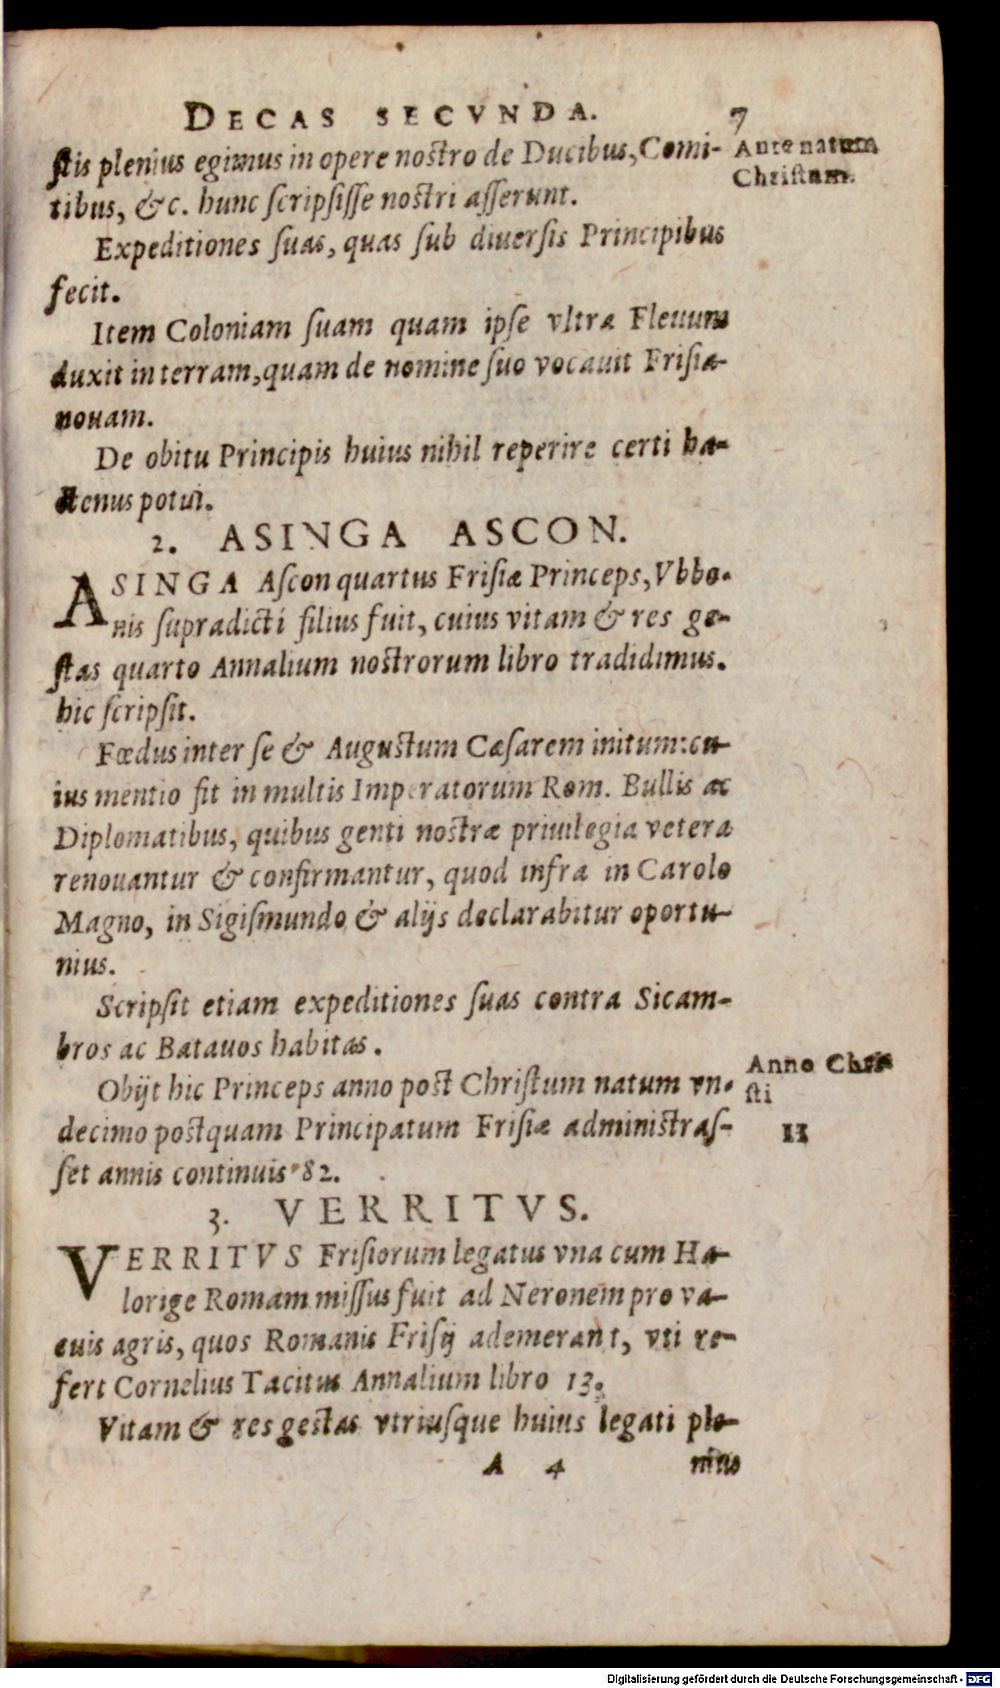 DECAS SECVNDA. 7
ſtis plenius egimus in opere noſtro de Ducibus, Comi-
Ante natum
Chriſtum.
tibus, &c. hunc ſcripſiſſe noſtri aſſerunt.
Expeditiones ſuas, quas ſub diuerſis Principibus
fecit.
Item Coloniam ſuam quam ipſe vltra Fleuum
duxit in terram, quam de nomine ſuo vocauit Friſia-
nouam.
De obitu Principis huius nihil reperire certi ha-
ctenus potui.
2. ASINGA ASCON.
ASINGA Aſcon quartus Friſiæ Princeps, Vbbo-
nis ſupradicti filius fuit, cuius vitam & res ge-
ſtas quarto Annalium noſtrorum libro tradidimus.
hic ſcripſit.
Fœdus inter ſe & Auguſtum Cæſarem initum: cu-
ius mentio fit in multis Imperatorum Rom. Bullis ac
Diplomatibus, quibus genti noſtræ priuilegia vetera
renouantur & confirmantur, quod infra in Carolo
Magno, in Sigiſmundo & alijs declarabitur oportu-
nius.
Scripſit etiam expeditiones ſuas contra Sicam-
bros ac Batauos habitas.
Obijt hic Princeps anno poſt Chriſtum natum vn-
Anno Chri-
ſti
11
decimo poſtquam Principatum Friſiæ adminiſtraſ-
ſet annis continuis 82.
3. VERRITVS.
VERRITVS Friſiorum legatus vna cum Ha-
lorige Romam miſſus fuit ad Neronem pro va-
cuis agris, quos Romanis Friſij ademerant, vti re-
fert Cornelius Tacitus Annalium libro 13.
Vitam & res geſtas vtriuſque huius legati ple-
A 4 nius
Digitalisierung gefördert durch die Deutsche Forschungsgemeinschaft - DFG